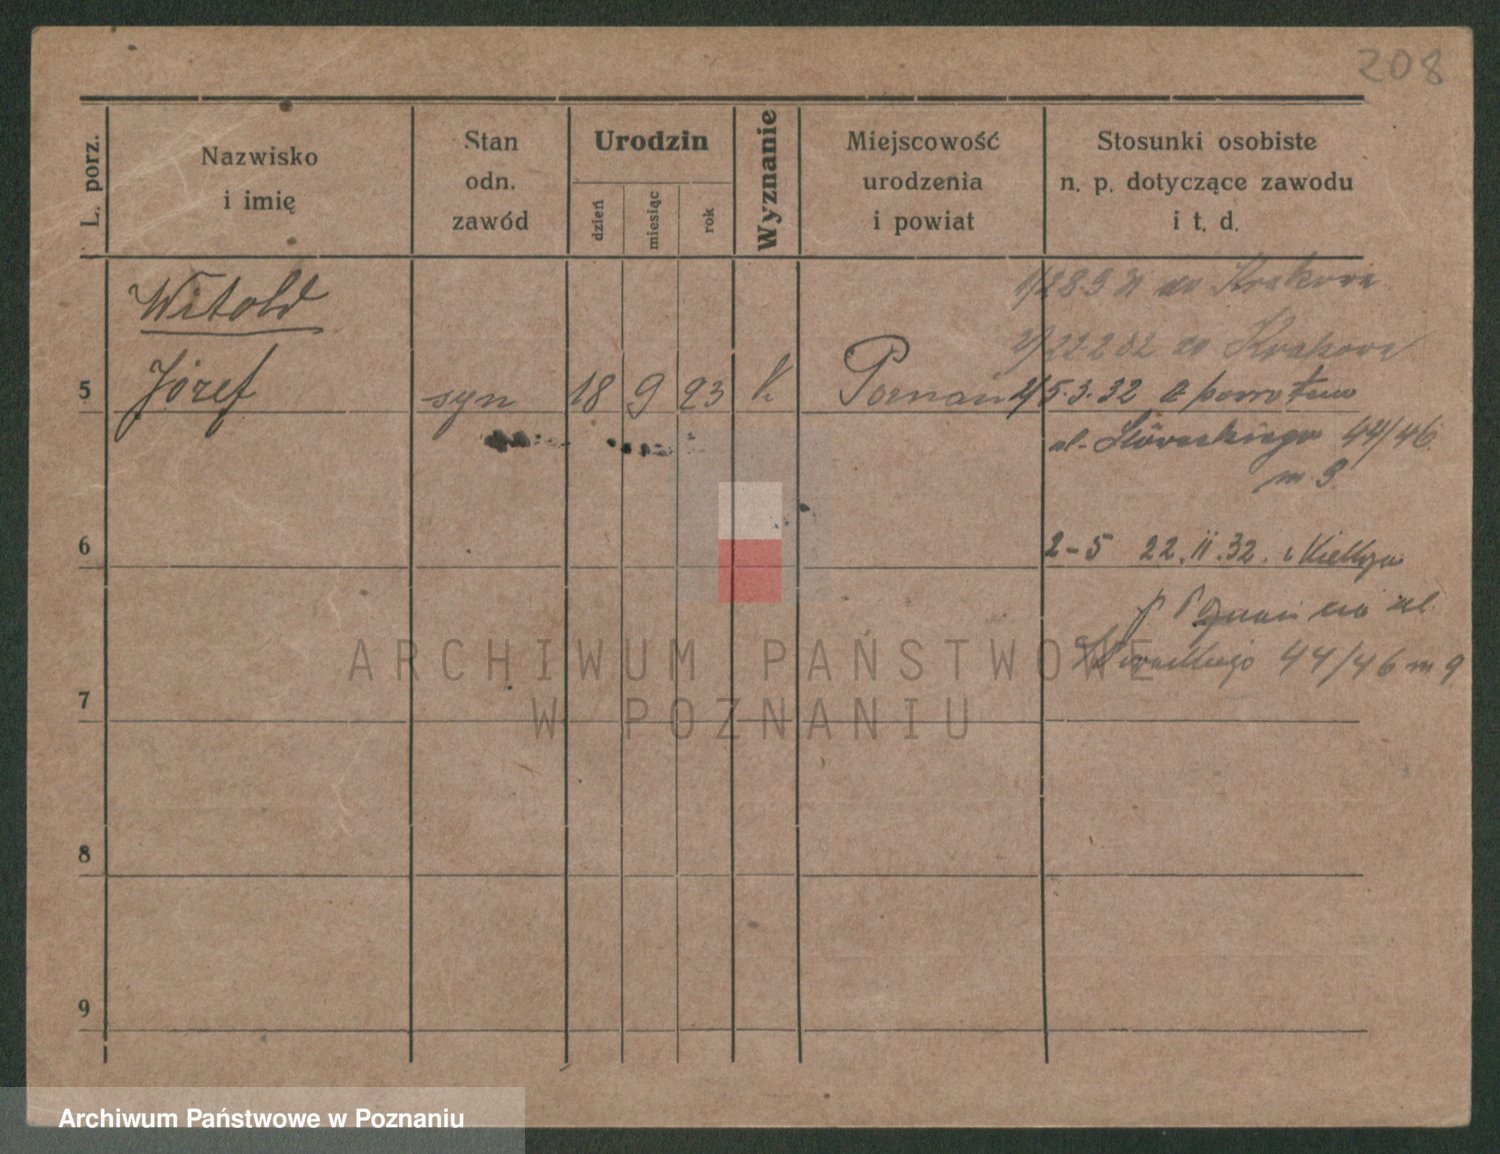 208
L. porz.
Nazwisko
i imię
Stan
odn.
zawód
Urodzin
dzień
miesiąc
rok
Wyznanie
Miejscowość
urodzenia
i powiat
Stosunki osobiste
n. p. dotyczące zawodu
i t. d.
Witold
Józef
5
syn
18
9
23
K
Poznań
1/28.9 31 do Krakowa
2/22.2 32 do Krakowa
2/5.3.32 z powrotem
ul. Słowackiego 44/46
m 9.
6
2-5 22.II.32. z
Poznań ul.
Słowackiego 44/46 m 9
7
8
9
ARCHIWUM PAŃSTWOWE
W POZNANIU
Archiwum Państwowe w Poznaniu